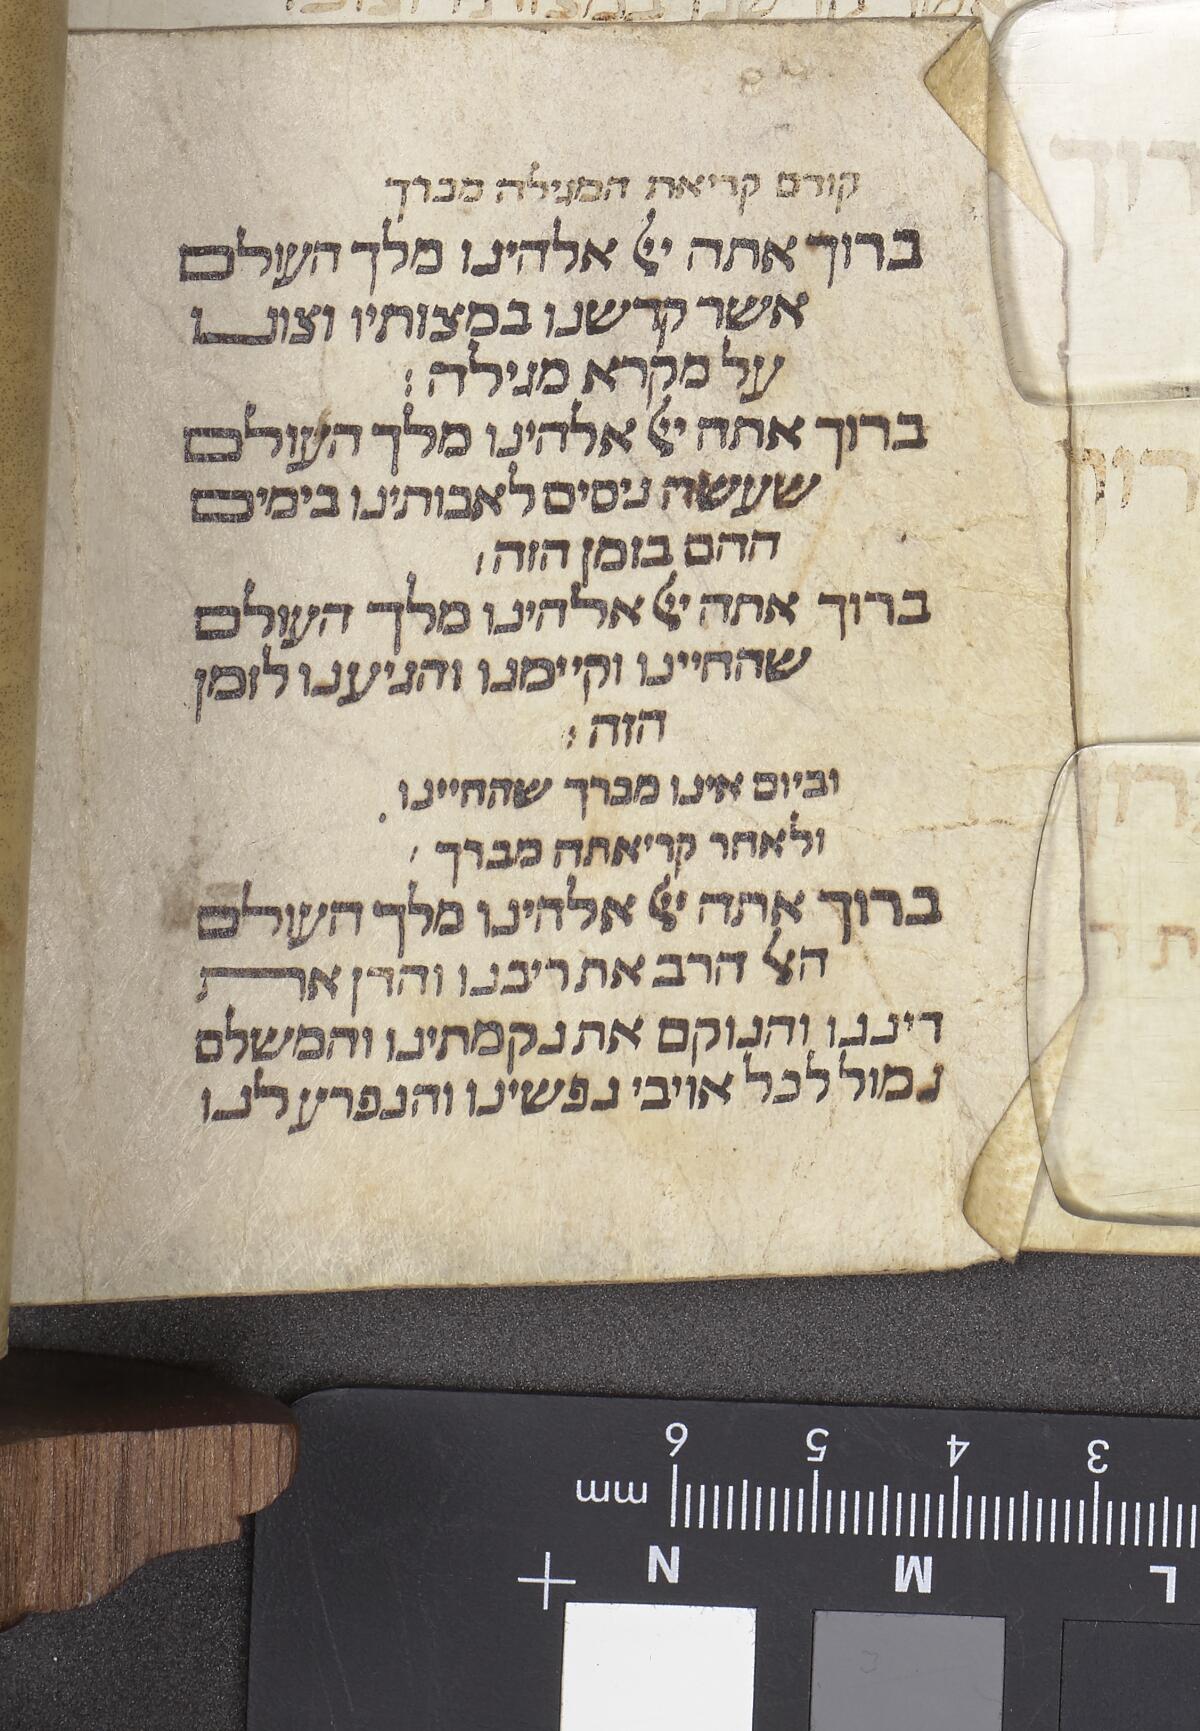 קודם קריאת המגילה מברך
ברוך אתה יי אלהינו מלך העולם
אשר קדשנו במצותיו וצונו
על מקרא מגילה :
ברוך אתה יי אלהינו מלך העולם
שעשה ניסים לאבותינו בימים
ההם בזמן הזה ׃
ברוך אתה יי אלהינו מלך העולם
שהחיינו וקיימנו והגיענו לזמן
הזה ׃
וביום אינו מברך שהחיינו .
ולאחר קריאתה מברך ׳
ברוך אתה יי אלהינו מלך העולם
האל הרב את ריבנו והדן את
דיננו והנוקם את נקמתינו והמשלם
גמול לכל אויבי נפשינו והנפרע לנו
6 5 4 3
mm
N M L